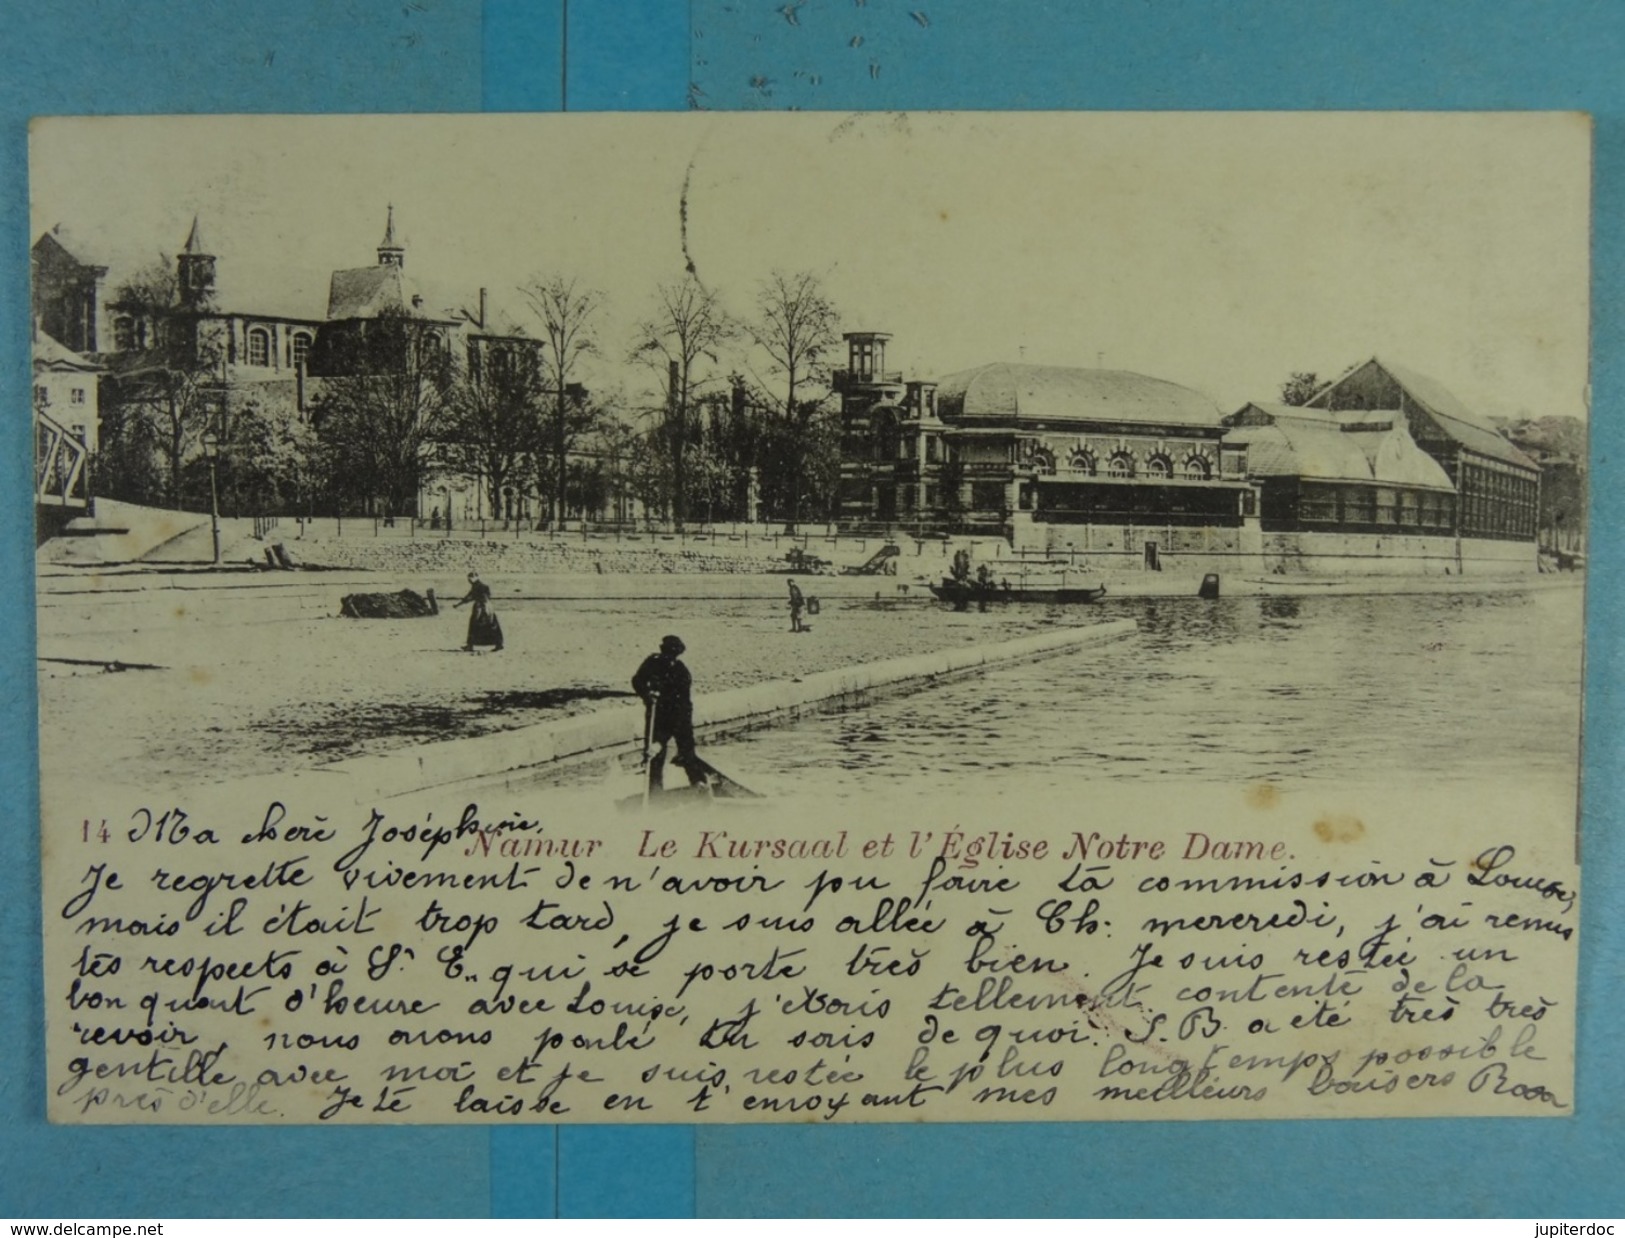 14 Ma chere Joséphine,
Namur Le Kursaal et l'Église Notre Dame.
Je regrette vivement de n'avoir pu faire ta commission à Louise,
mais il était trop tard, je suis allée à Ch. mercredi, j'ai remis
tes respects à Sr E.. qui se porte très bien. Je suis restée un
bon quart d'heure avec Louise, j'étais tellement contente de la
revoir, nous avons parlé tu sais de quoi. S.B. a été très très
gentille avec moi et je suis restée le plus longtemps possible
près d'elle. Je te laisse en t'envoyant mes meilleurs baisers Rosa
www.delcampe.net
jupiterdoc